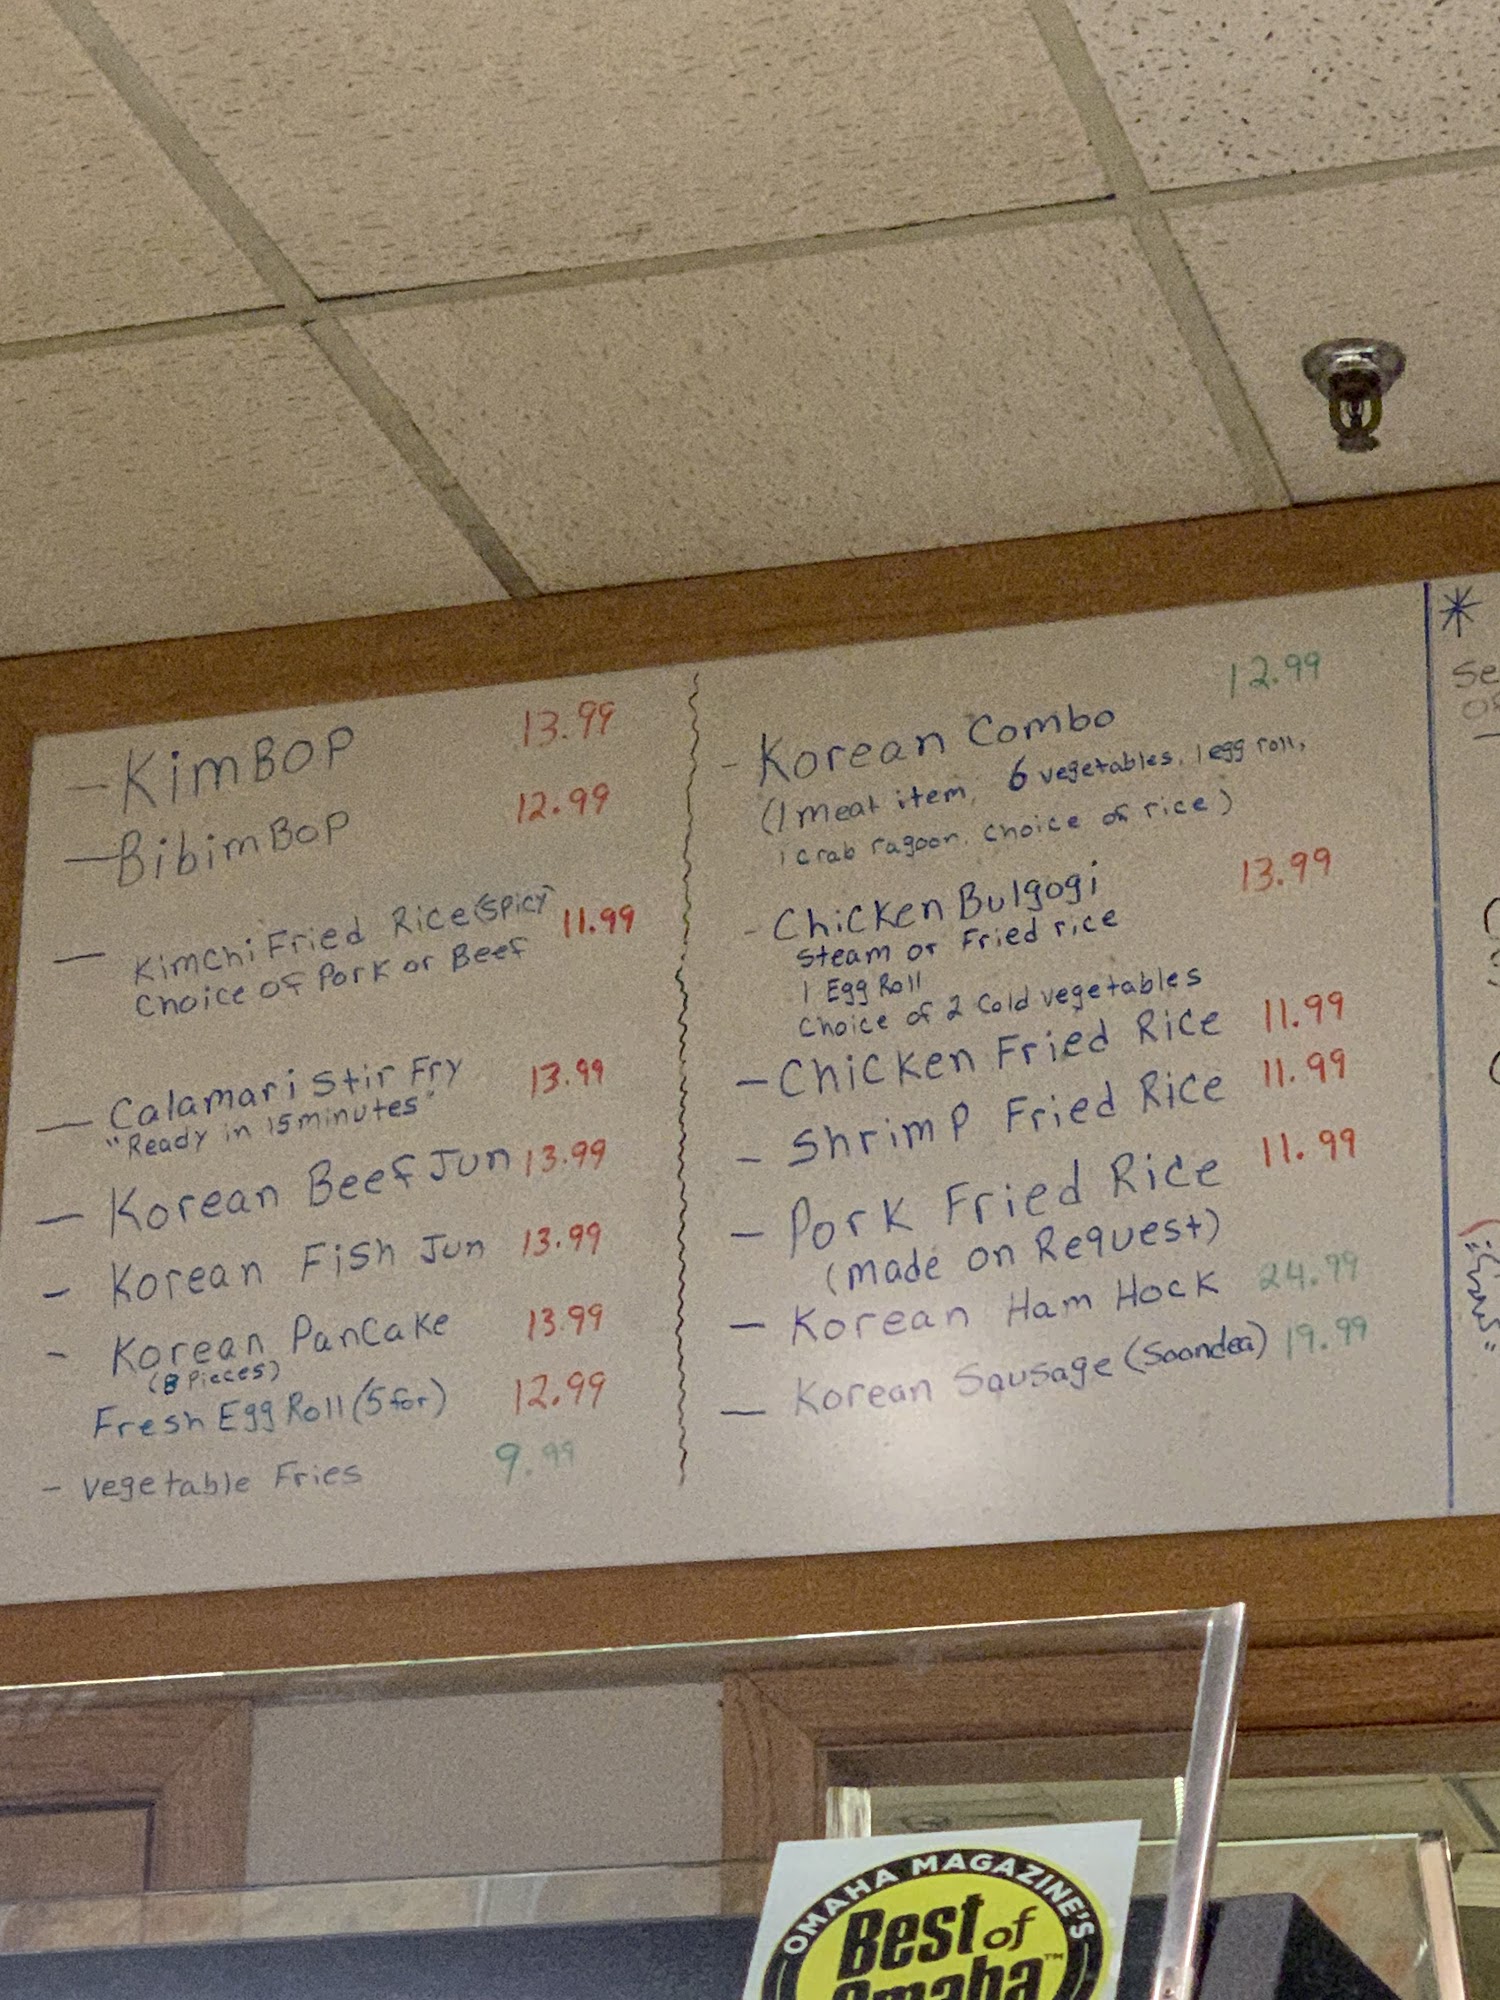 - KimBOP 13.99
- BibimBOP 12.99
- Kimchi Fried Rice (Spicy) 11.99
Choice of Pork or Beef
- Calamari Stir Fry 13.99
"Ready in 15 minutes"
- Korean Beef Jun 13.99
- Korean Fish Jun 13.99
- Korean Pancake 13.99
(8 Pieces)
Fresh Egg Roll (5 for) 12.99
- Vegetable Fries 9.99
- Korean Combo 12.99
(1 meat item, 6 vegetables, 1 egg roll,
1 crab ragoon, choice of rice)
- Chicken Bulgogi 13.99
Steam or Fried rice
1 Egg Roll
Choice of 2 Cold vegetables
- Chicken Fried Rice 11.99
- Shrimp Fried Rice 11.99
- Pork Fried Rice 11.99
(made on Request)
- Korean Ham Hock 24.99
- Korean Sausage (Soondea) 19.99
*
OMAHA MAGAZINE'S
Best of
Omaha™